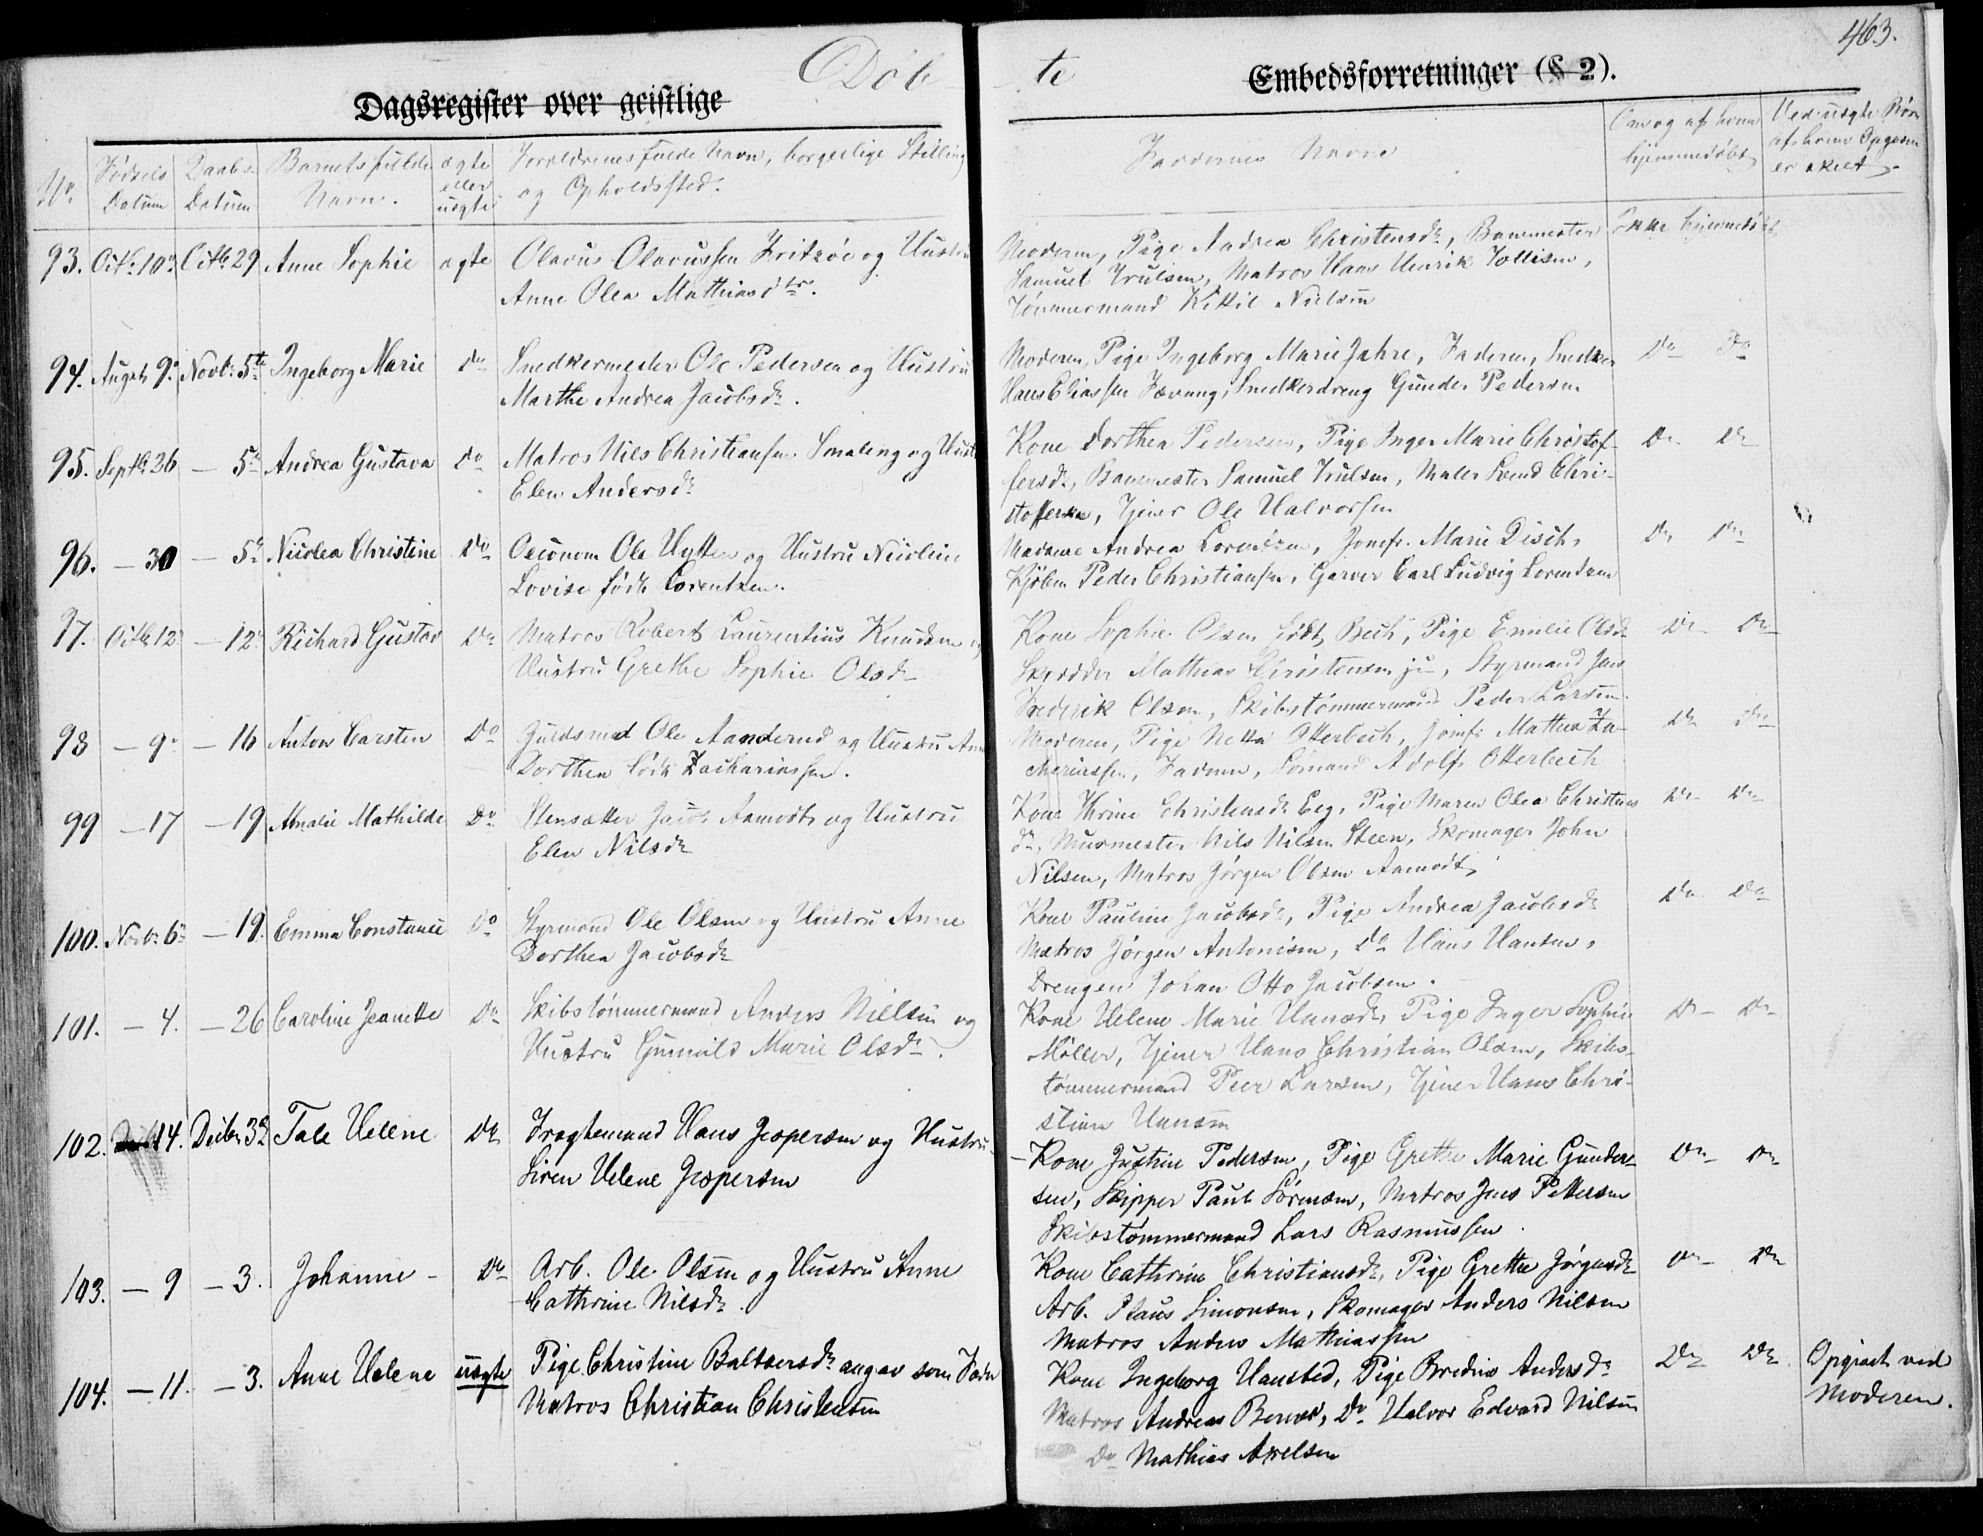 463.
Döb
te
Dagsregister over geistlige
Embedsforretninger (§ 2).
No. Fødsels Datum Daabs Datum Barnets fulde Navn. ægte eller uægte Forældrenes fulde Navn, borgerlige Stilling og Opholdssted.
Faddernes Navne
Om og af hvem hjemmedøbt
Ved uægte Børn af hvem Opgaven er skeet
93. Octbr 10de Octbr 29 Anne Sophie ægte Olavus Olavussen Fritzöe og Hustru
Anne Olea Mathiasdtr.
Moderen, Pige Andrea Christensdr, Banemester Ikke hjemmedöbt
Samuel Trulsen, Matros Hans Henrik Tollisen,
Tömmermand Kittil Nielsen
94. August 9de Novbr 5te Ingeborg Marie Do Snedkermester Ole Pedersen og Hustru
Marthe Andrea Jacobsdr.
Moderen, Pige Ingeborg Marie Jahre, Faderen, Snedker Do Do
Hans Eliassen Farvung, Snedkerdreng Gunder Pedersen
95. Septbr 26 — 5te Andrea Gustava Do Matros Nils Christiansen Smaleng og Hust
Elen Andersdr
Kone Dorthea Pedersen, Pige Inger Marie Christof- Do Do
fersdr, Banemester Samuel Trulsen, Maler Svend Chri-
stoffersen, Tjener Ole Halvorsen
96. — 30 — 5te Nicolea Christine Do Oeconom Ole Hytten og Hustru Nicoline
Lovise födt Lorentzen.
Madame Andrea Lorentzen, Jomfr. Marie Disch, Do Do
Kjöbm Peder Christiansen, Garver Carl Ludvig Lorentzen
97. Octbr 12 — 12te Richard Gustav Do Matros Robert Laurentius Knudsen og
Hustru Grethe Sophie Olsdr
Kone Sophie Olsen födt Bech, Pige Emilie Olsdr Do Do
Skrædder Mathias Christensen jr, Styrmand Jens
Frederik Olsen, Skibstömmermand Peder Larsen.
98 — 9de — 16 Anton Carsten Do Guldsmed Ole Aanderud og Hustru Ann
Dorthea födt Zachariassen.
Moderen, Pige Netta Otterbech, Jomfr Mathea Za- Do Do
chariassen, Faderen, Sömand Adolf Otterbech
99 — 17 — 19 Amalie Mathilde Do Stensætter Jacob Aamodt og Hustru
Elen Nilsdr
Kone Thrine Christensdr Eeg, Pige Maren Olea Christens Do Do
dr, Murmester Nils Nilsen Steen, Skomager John
Nilsen, Matros Jörgen Olsen Aamodt,
100. Novbr 6te — 19. Emma Constance Do Styrmand Ole Olsen og Hustru Anne
Dorthea Jacobsdr
Kone Pauline Jacobsdr, Pige Andrea Jacobsdr Do Do
Matros Jörgen Antonisen, Do Hans Hansen,
Drengen Johan Otto Jacobsen.
101. — 4. — 26 Caroline Jeanette Do Skibstömmermand Anders Nielsen og
Hustru Gunnild Marie Olsdr.
Kone Helene Marie Hansdr, Pige Inger Sophie Do Do
Möller, Tjener Hans Christian Olsen, Skibs-
tömmermand Peer Larsen, Tjener Hans Chri-
stian Hansen
102. 14. Decbr 3 Tale Helene Do Fragtemand Hans Jespersen og Hustru
Siren Helene Jespersen
Kone Justine Pedersen, Pige Grethe Marie Gunder- Do Do
sen, Skipper Paul Sörensen, Matros Jens Pettersen
Skibstömmermand Lars Rasmussen
103. — 9 — 3. Johanne — Do Arb. Ole Olsen og Hustru Anne
Cathrine Nilsdr.
Kone Cathrine Christiansdr, Pige Grethe Jörgensdr Do Do
Arb. Claus Simonsen, Skomager Anders Nilsen
Matros Anders Mathiassen
104. — 11. — 3. Anne Helene uægte Pige Christine Baltzersdr angav som Fader
Matros Christian Christensen
Kone Ingeborg Hansted, Pige Bredine Andersdr Do Do Opgivet ved
Matros Andreas Berner, Do Halvor Edvard Nilsen Moderen.
Do Mathias Axelsen